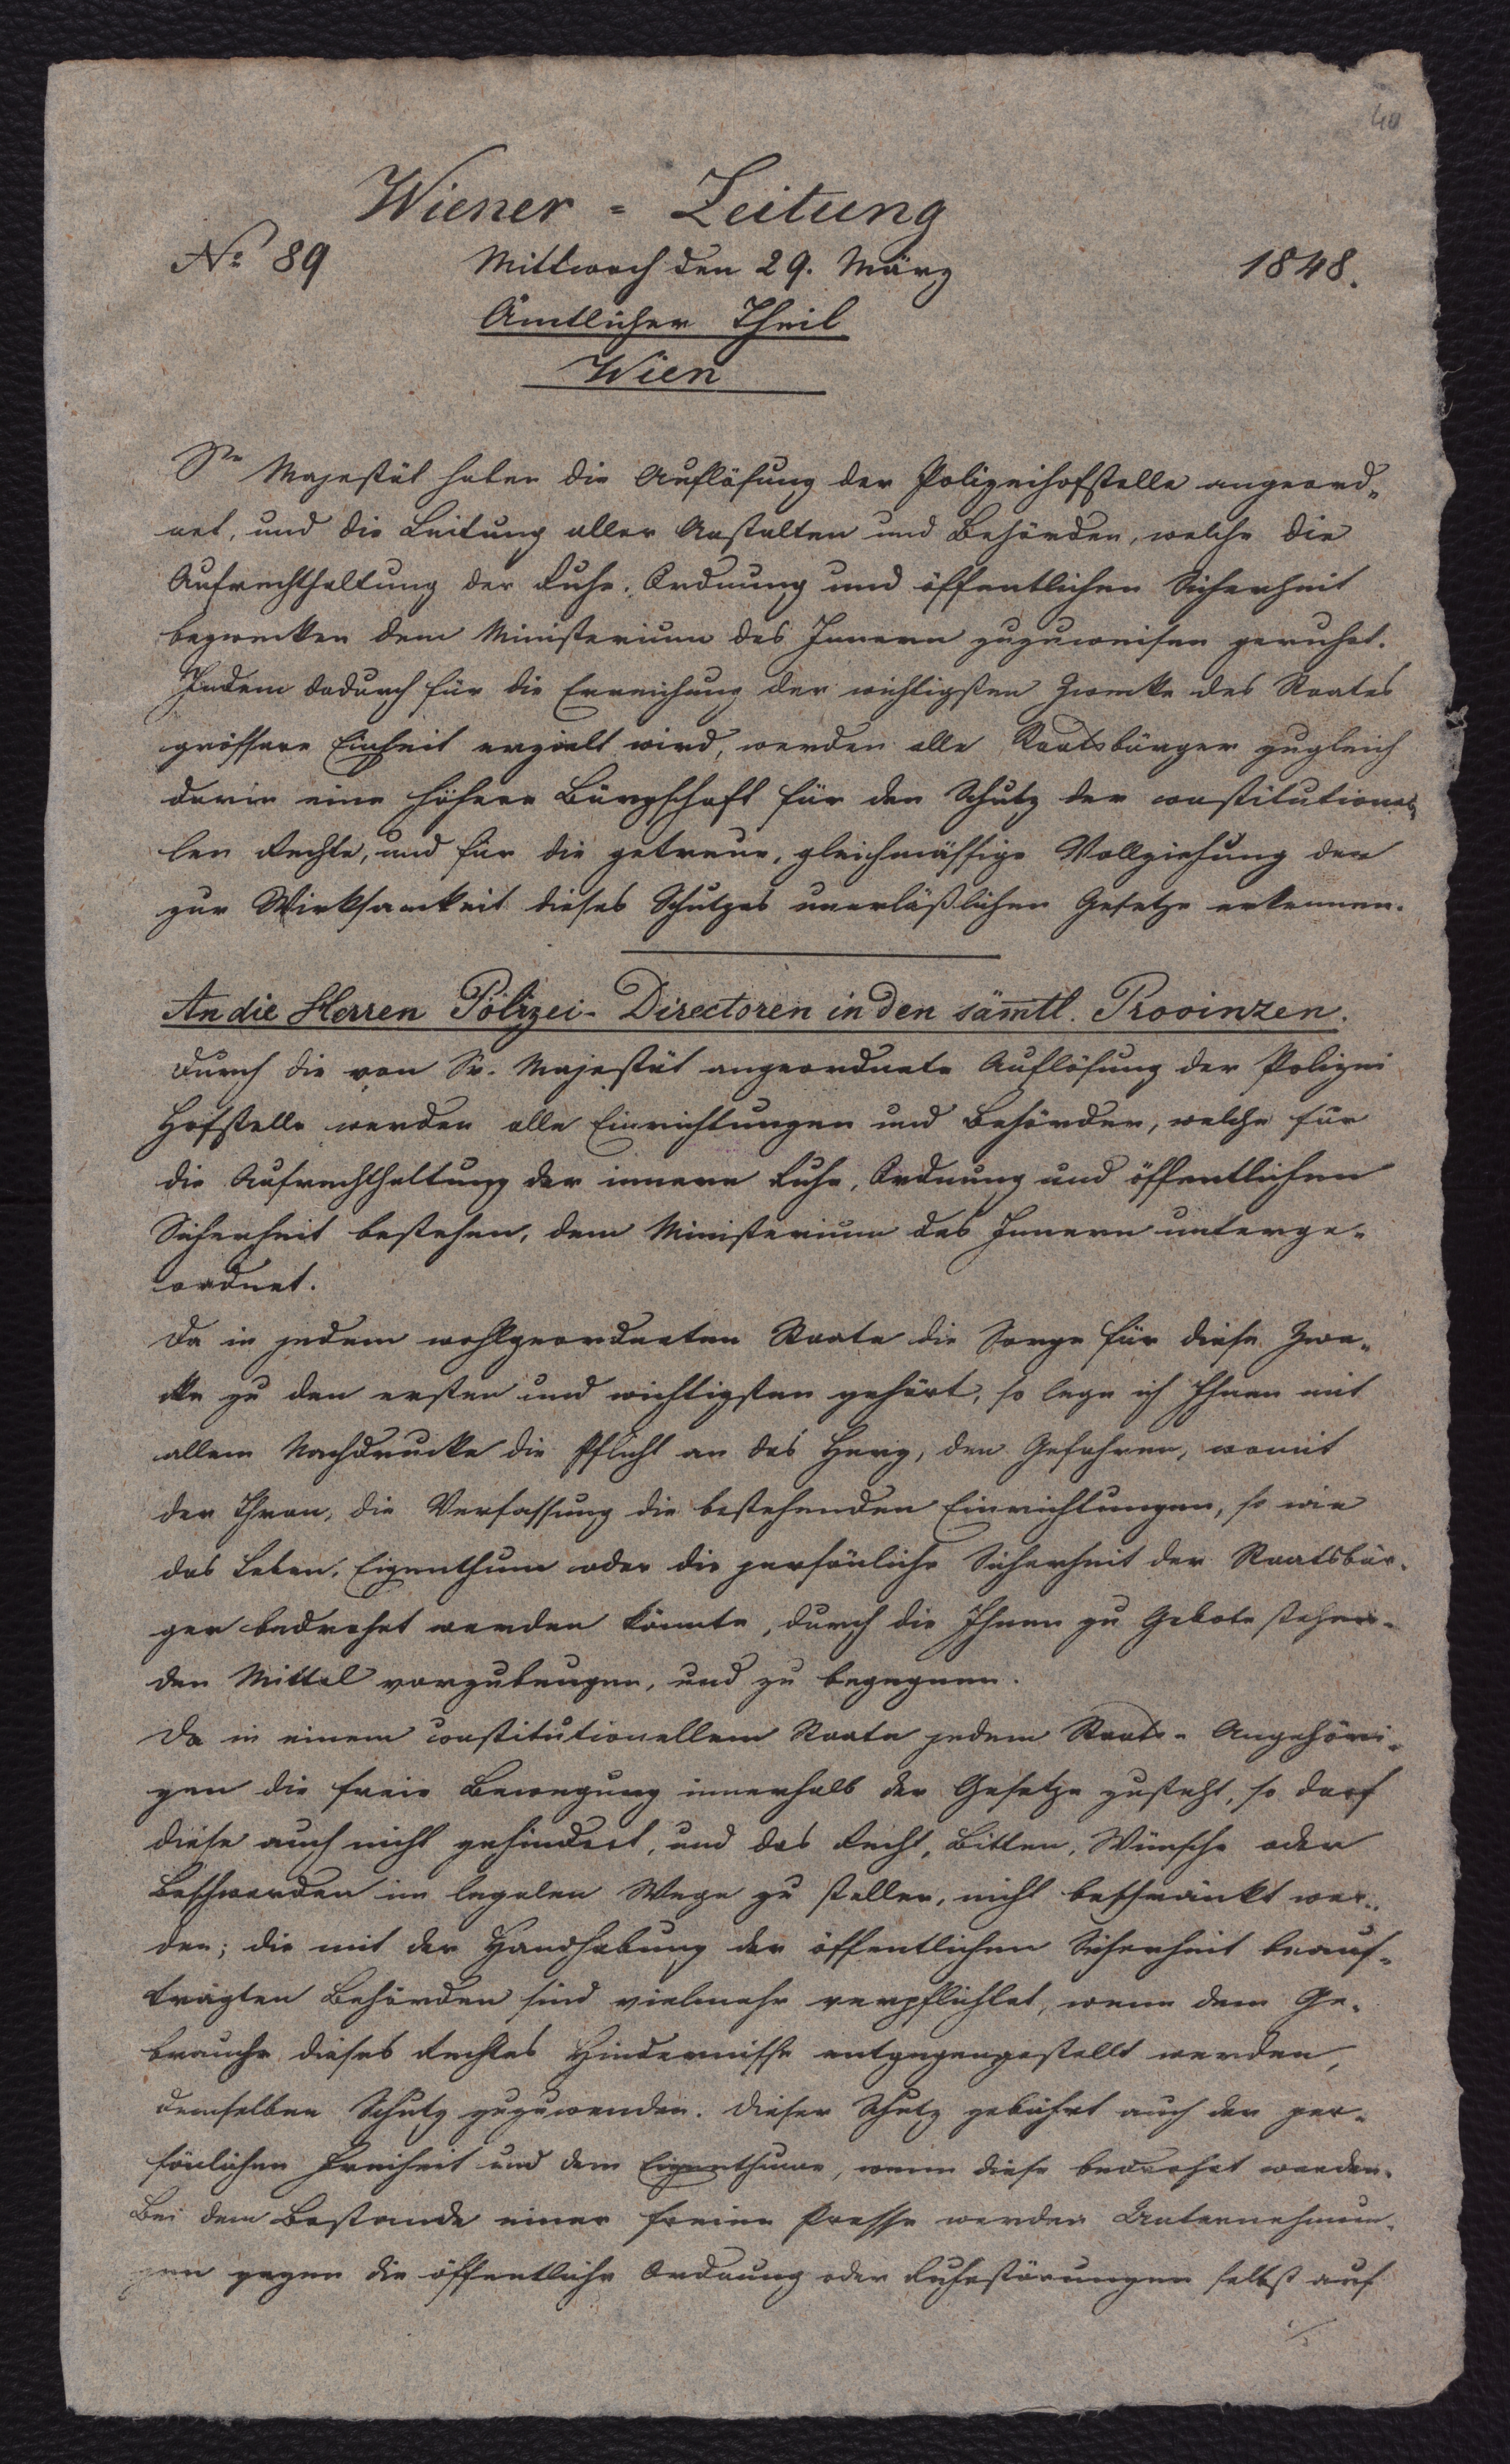 40
Wiener = Zeitung
No 89 Mittwoch den 29. März 1848.
Amtlicher Theil
Wien
Se Majestät haben die Auflösung der Polizeihofstelle angeord=
net, und die Leitung aller Anstalten und Behörden, welche die
Aufrechthaltung der Ruhe, Ordnung und öffentlichen Sicherheit
bezwecken dem Ministerium des Innern zuzuweisen geruhet.
Indem dadurch für die Erreichung der wichtigsten Zwecke des Staates
grössere Einheit erzielt wird, werden alle Staatsbürger zugleich
darin eine höhere Bürgschaft für den Schutz der constitutionel=
len Rechte, und für die getreue, gleichmässige Vollziehung der
zur Wirksamkeit dieses Schutzes unerläßlichen Gesetze erkennen.
An die Herren Polizei- Directoren in den sämtl. Provinzen.
Durch die von Sr. Majestät angeordnete Auflösung der Polizei
Hofstelle werden alle Einrichtungen und Behörden, welche für
die Aufrechthaltung der innern Ruhe, Ordnung und öffentlichen
Sicherheit bestehen, dem Ministerium des Innern unterge-
ordnet.
Da in jedem wohlgeordneten Staate die Sorge für diese Zwe-
cke zu den ersten und wichtigsten gehört, so lege ich Ihnen mit
allem Nachdrucke die Pflicht an das Herz, den Gefahren, womit
der Thron, die Verfassung die bestehenden Einrichtungen, so wie
das Leben, Eigenthum oder die persönliche Sicherheit der Staatsbür-
ger bedrohet werden könnte, durch die Ihnen zu Gebote stehen-
den Mittel vorzubeugen, und zu begegnen.
Da in einem constitutionellem Staate jedem Staats- Angehöri-
gen die freie Bewegung innerhalb der Gesetze zusteht, so darf
diese auch nicht gehindert, und das Recht, Bitten, Wünsche oder
Beschwerden im legalen Wege zu stellen, nicht beschränkt wer-
den; die mit der Handhabung der öffentlichen Sicherheit beauf-
tragten Behörden sind vielmehr verpflichtet, wenn dem Ge-
brauche dieses Rechtes Hindernisse entgegengestellt werden,
demselben Schutz zuzuwenden. Dieser Schutz gebührt auch der per-
sönlichen Freiheit und dem Eigenthume, wenn diese bedrohet werden.
Bei dem Bestande einer freien Presse werden Unternehmun-
gen gegen die öffentliche Ordnung oder Ruhestörungen selbst auf